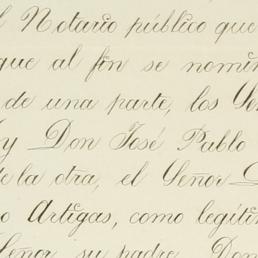 l Notario público que
que al fin se nomin
de una parte, los Señ
y Don José Pablo
de la otra, el Señor
o Artigas, como legíti
Señor su padre Don